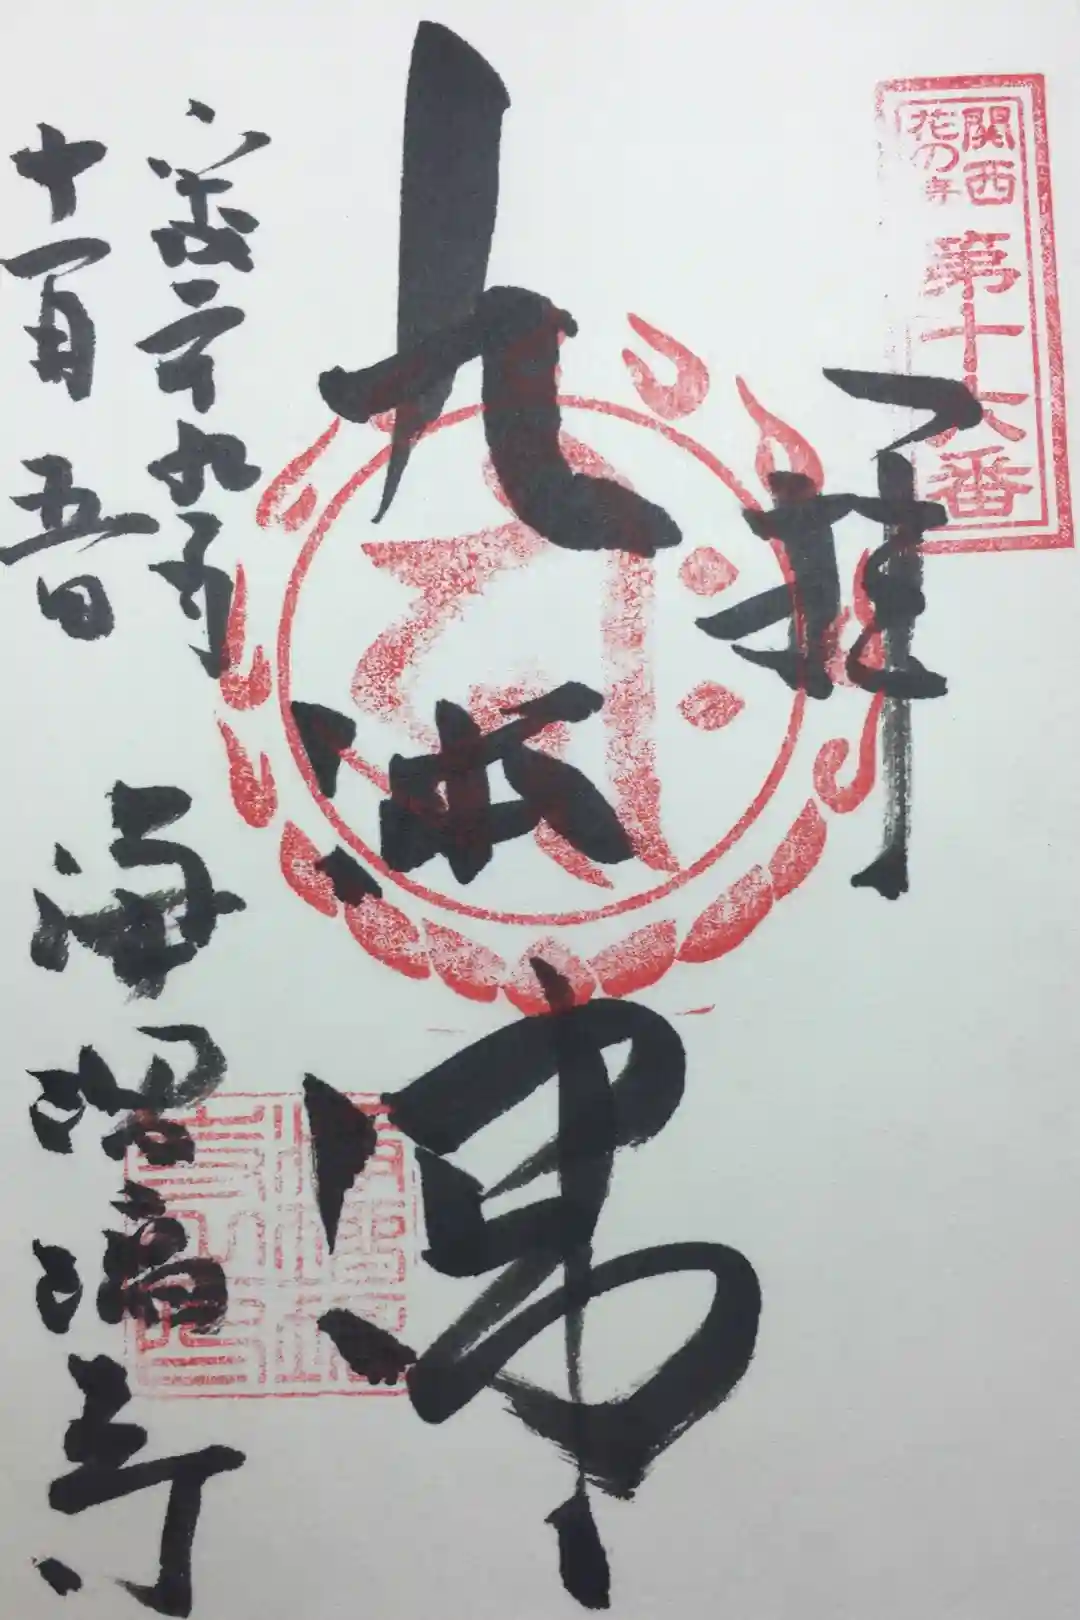 関西
花の寺
第十六番
拝
九体佛
平成二十九年
十一月五日
浄瑠璃寺